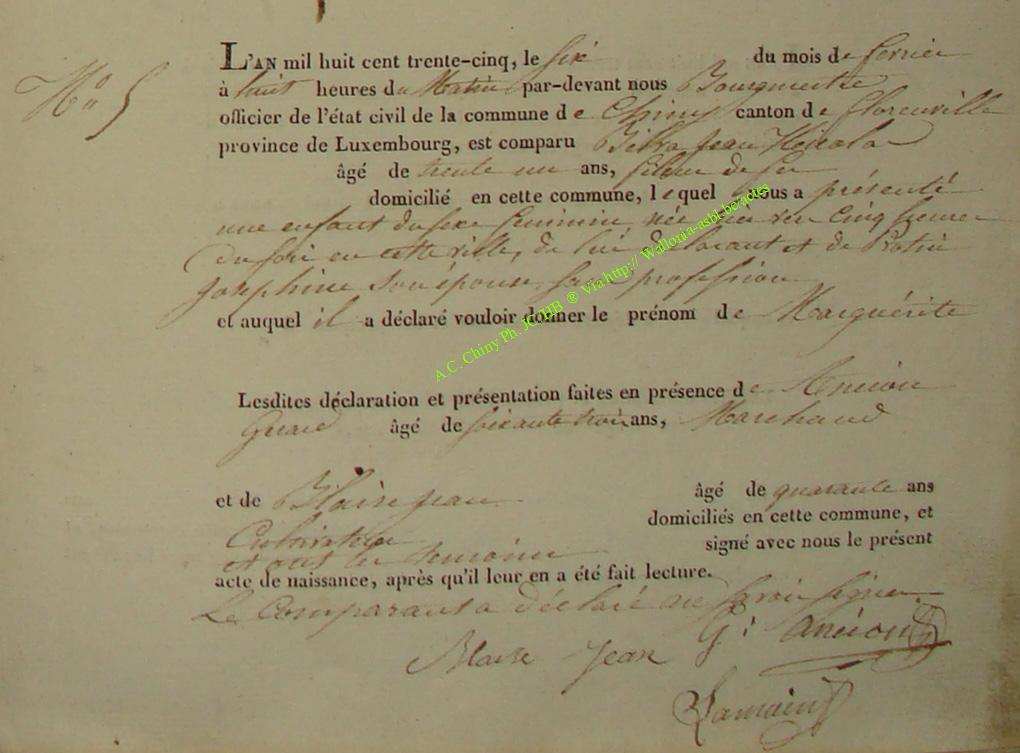 N° 5
L'AN mil huit cent trente-cinq, le six du mois de fevrier
à huit heures du Matin par-devant nous Bourgmestre
officier de l'état civil de la commune de Chiny canton de florenville
province de Luxembourg, est comparu Jean Nicolas
âgé de trente un ans, fileur de fer
domicilié en cette commune, lequel nous a présenté
une enfant du sexe feminin née hier a cinq heures
du soir en cette ville, de lui declarant et de
Josephine son épouse, sans profession
et auquel il a déclaré vouloir donner le prénom de Marguérite
Lesdites déclaration et présentation faites en présence de Ancion
Gerard âgé de soixante trois ans, Marchand
et de Blaise jean âgé de quarante ans
Cultivateur domiciliés en cette commune, et
et ont les temoins signé avec nous le présent
acte de naissance, après qu'il leur en a été fait lecture.
Le Comparant a déclaré ne savoir signer.
Blaise Jean G: Ancion
Lamain
A.C. Chiny Ph. JCHHB ® Via http:// Wallonia-asbl.be/actes